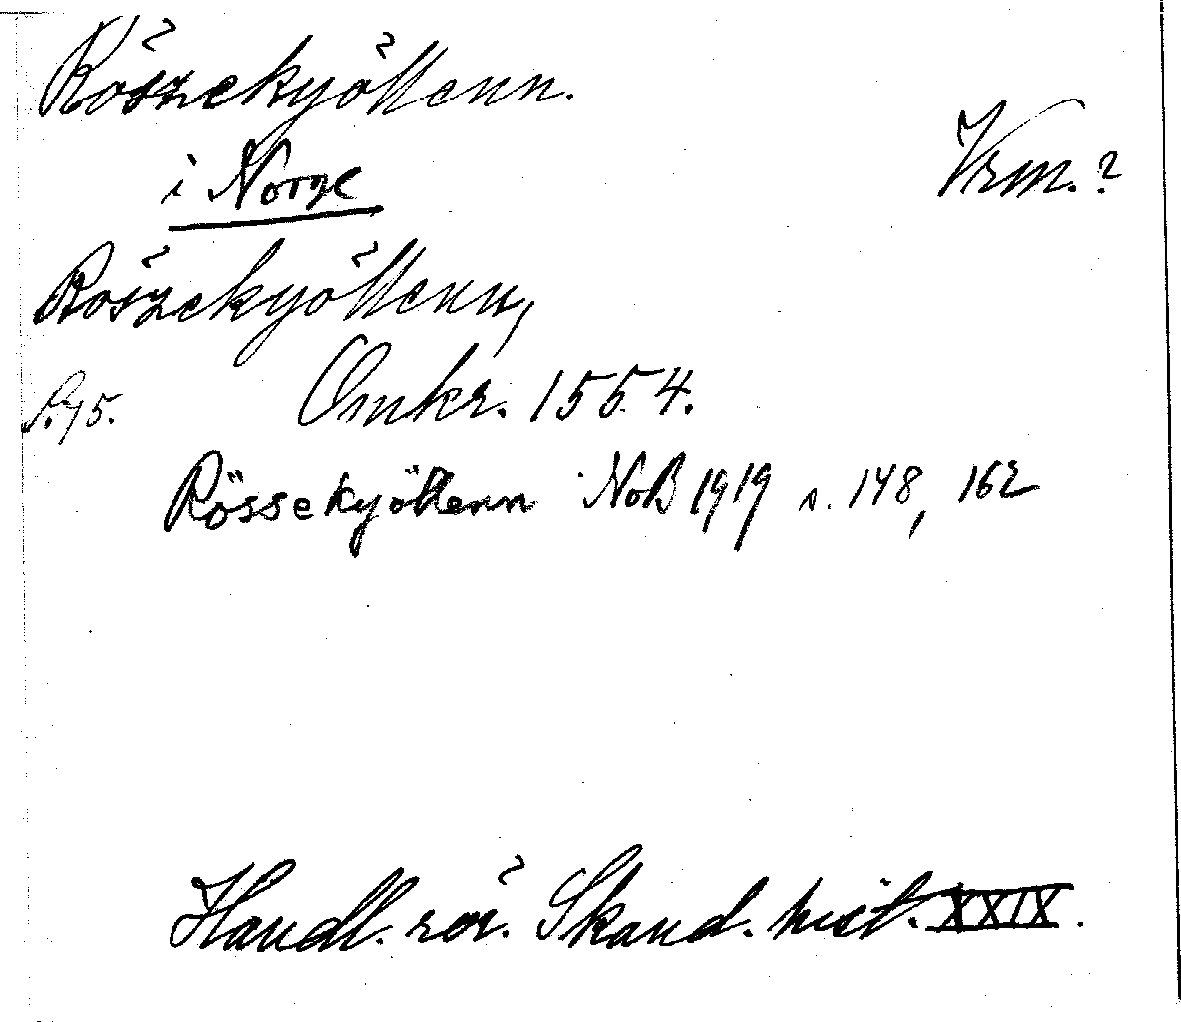 Röszekyöttenn.
i Norge
Vrm.?
Röszekyöttenn,
S. 75. Omkr. 1554.
Rössekyöttenn NoB 1919 s. 148, 162
Handl. rör. Skand. hist. XXIX.